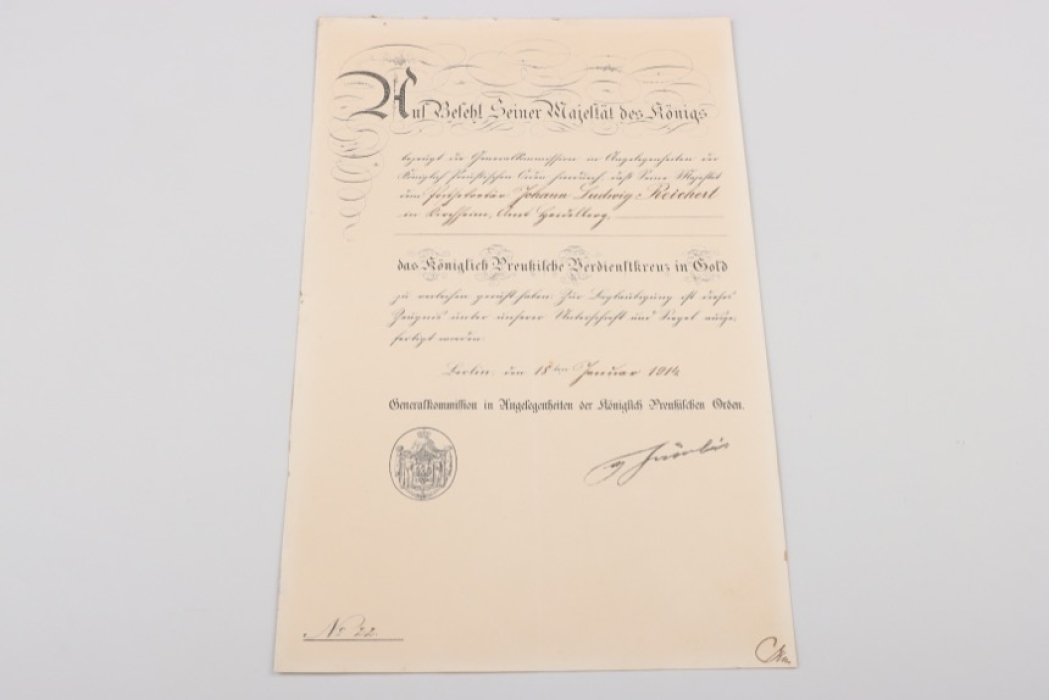 Auf Befehl Seiner Majestät des Königs
bezeugt die Generalkommission in Angelegenheiten der
Königlich Preußischen Orden hierdurch, daß Seine Majestät
dem Postsekretär Johann Ludwig Reichert
in Kirchheim, Amt Heidelberg,
das Königlich Preußische Verdienstkreuz in Gold
zu verleihen geruht haben. Zur Beglaubigung ist dieses
Zeugnis unter unserer Unterschrift und Siegel ausge-
fertigt worden.
Berlin, den 18ten Januar 1914
Generalkommission in Angelegenheiten der Königlich Preußischen Orden.
No 22.